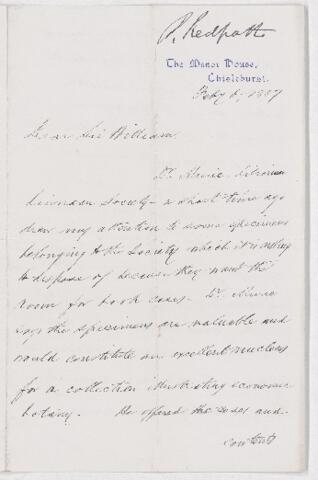 P. Redpath
The Manor House,
Chislehurst.
Feby 6, 1887
Dear Sir William.
Dr. Murie, Librarian
Linnean Society - a short time ago
drew my attention to some specimens
belonging to the Society which it is willing
to dispose of because they want the
room for book cases. Dr. Murie
says the specimens are valuable and
would constitute an excellent nucleus
for a collection illustrating economic
botany. He offered the cases and
contents